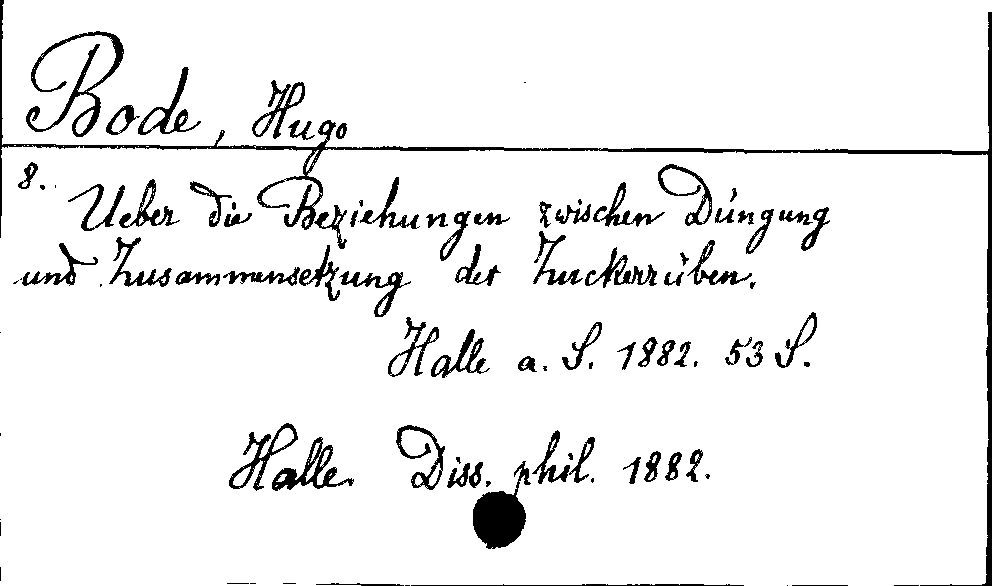 Bode, Hugo
8.
Ueber die Beziehungen zwischen Düngung
und Zusammensetzung der Zuckerrüben.
Halle a. S. 1882. 53 S.
Halle. Diss. phil. 1882.